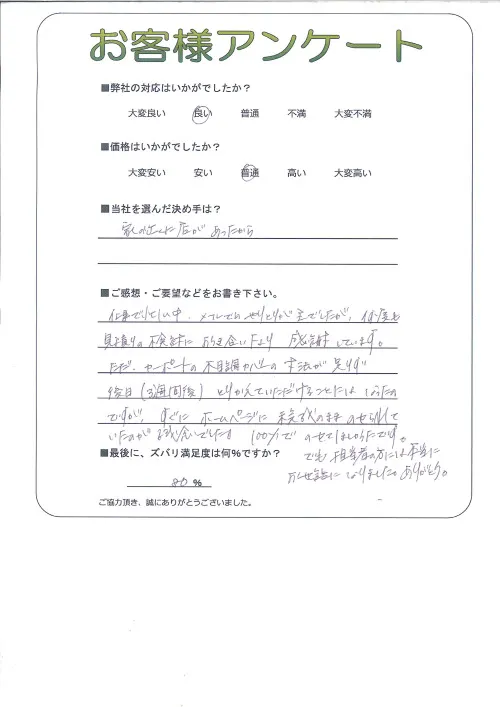 お客様アンケート
■弊社の対応はいかがでしたか？
大変良い 良い 普通 不満 大変不満
■価格はいかがでしたか？
大変安い 安い 普通 高い 大変高い
■当社を選んだ決め手は？
家の近くに店があったから
■ご感想・ご要望などをお書き下さい。
仕事で忙しい中、メールでのやりとりが主でしたが、何度も
見積りの検討にお付き合い下さり 感謝しています。
ただ、カーポートの木目調カバーの寸法が足りず
後日（3週間後）とりかえていただけることにはなったの
ですが、すぐに ホームページに未完成のまま のせられて
いたのが 残念でした 100%で のせてほしかったです。
でも 担当者の方には本当に
お世話になりました。ありがとう。
■最後に、ズバリ満足度は何％ですか？
80 %
ご協力頂き、誠にありがとうございました。